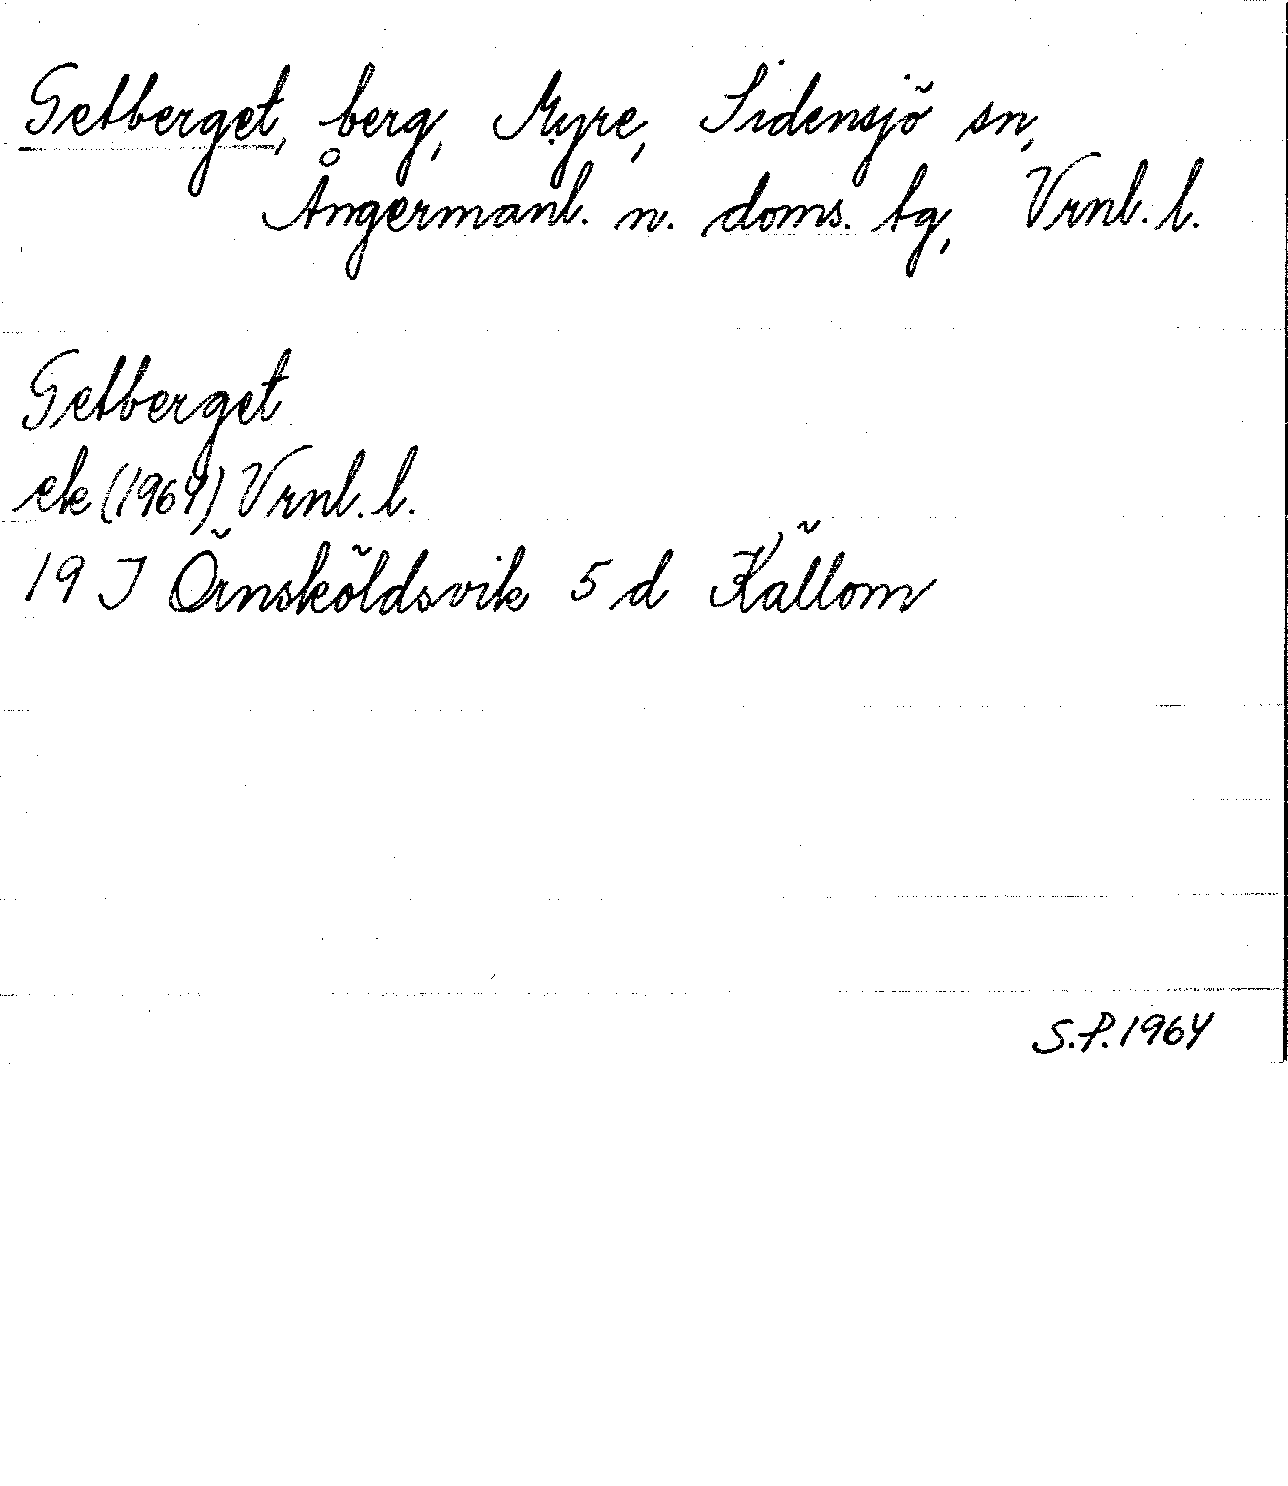 Getberget, berg, Myre, Sidensjö sn,
Ångermanl. n. doms. tg, Vrnl. l.
Getberget
ek (1964) Vrnl. l.
19 J Örnsköldsvik 5 d Källom
S.P. 1964